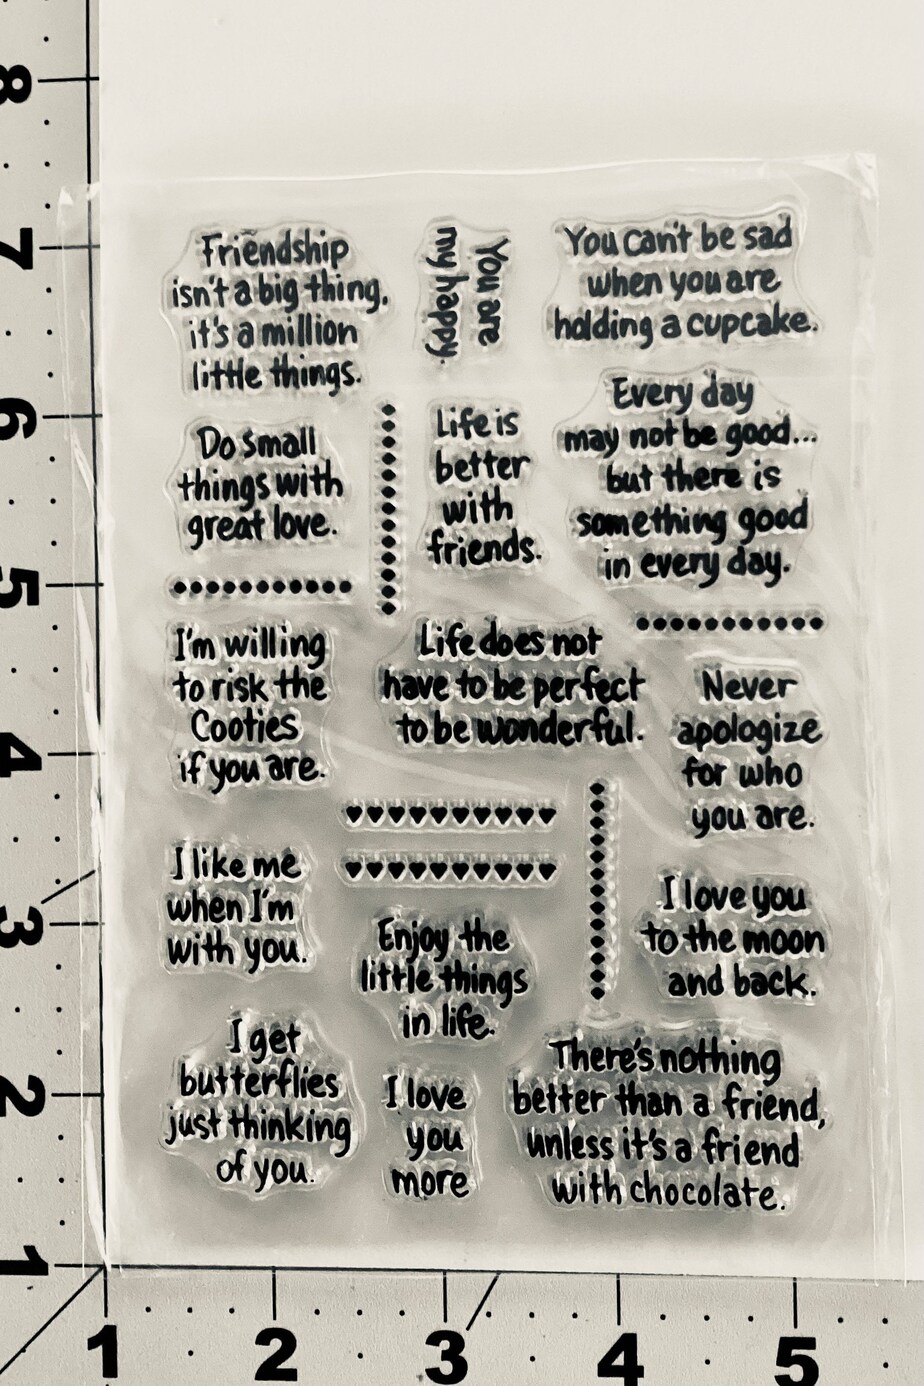 8
7
6
5
4
3
2
1
Friendship
isn't a big thing,
it's a million
little things.
You are
my happy.
You can't be sad
when you are
holding a cupcake.
Do small
things with
great love.
Life is
better
with
friends.
Every day
may not be good...
but there is
something good
in every day.
I'm willing
to risk the
Cooties
if you are.
Life does not
have to be perfect
to be wonderful.
Never
apologize
for who
you are.
I like me
when I'm
with you.
Enjoy the
little things
in life.
I love you
to the moon
and back.
I get
butterflies
just thinking
of you.
I love
you
more
There's nothing
better than a friend,
unless it's a friend
with chocolate.
1 2 3 4 5